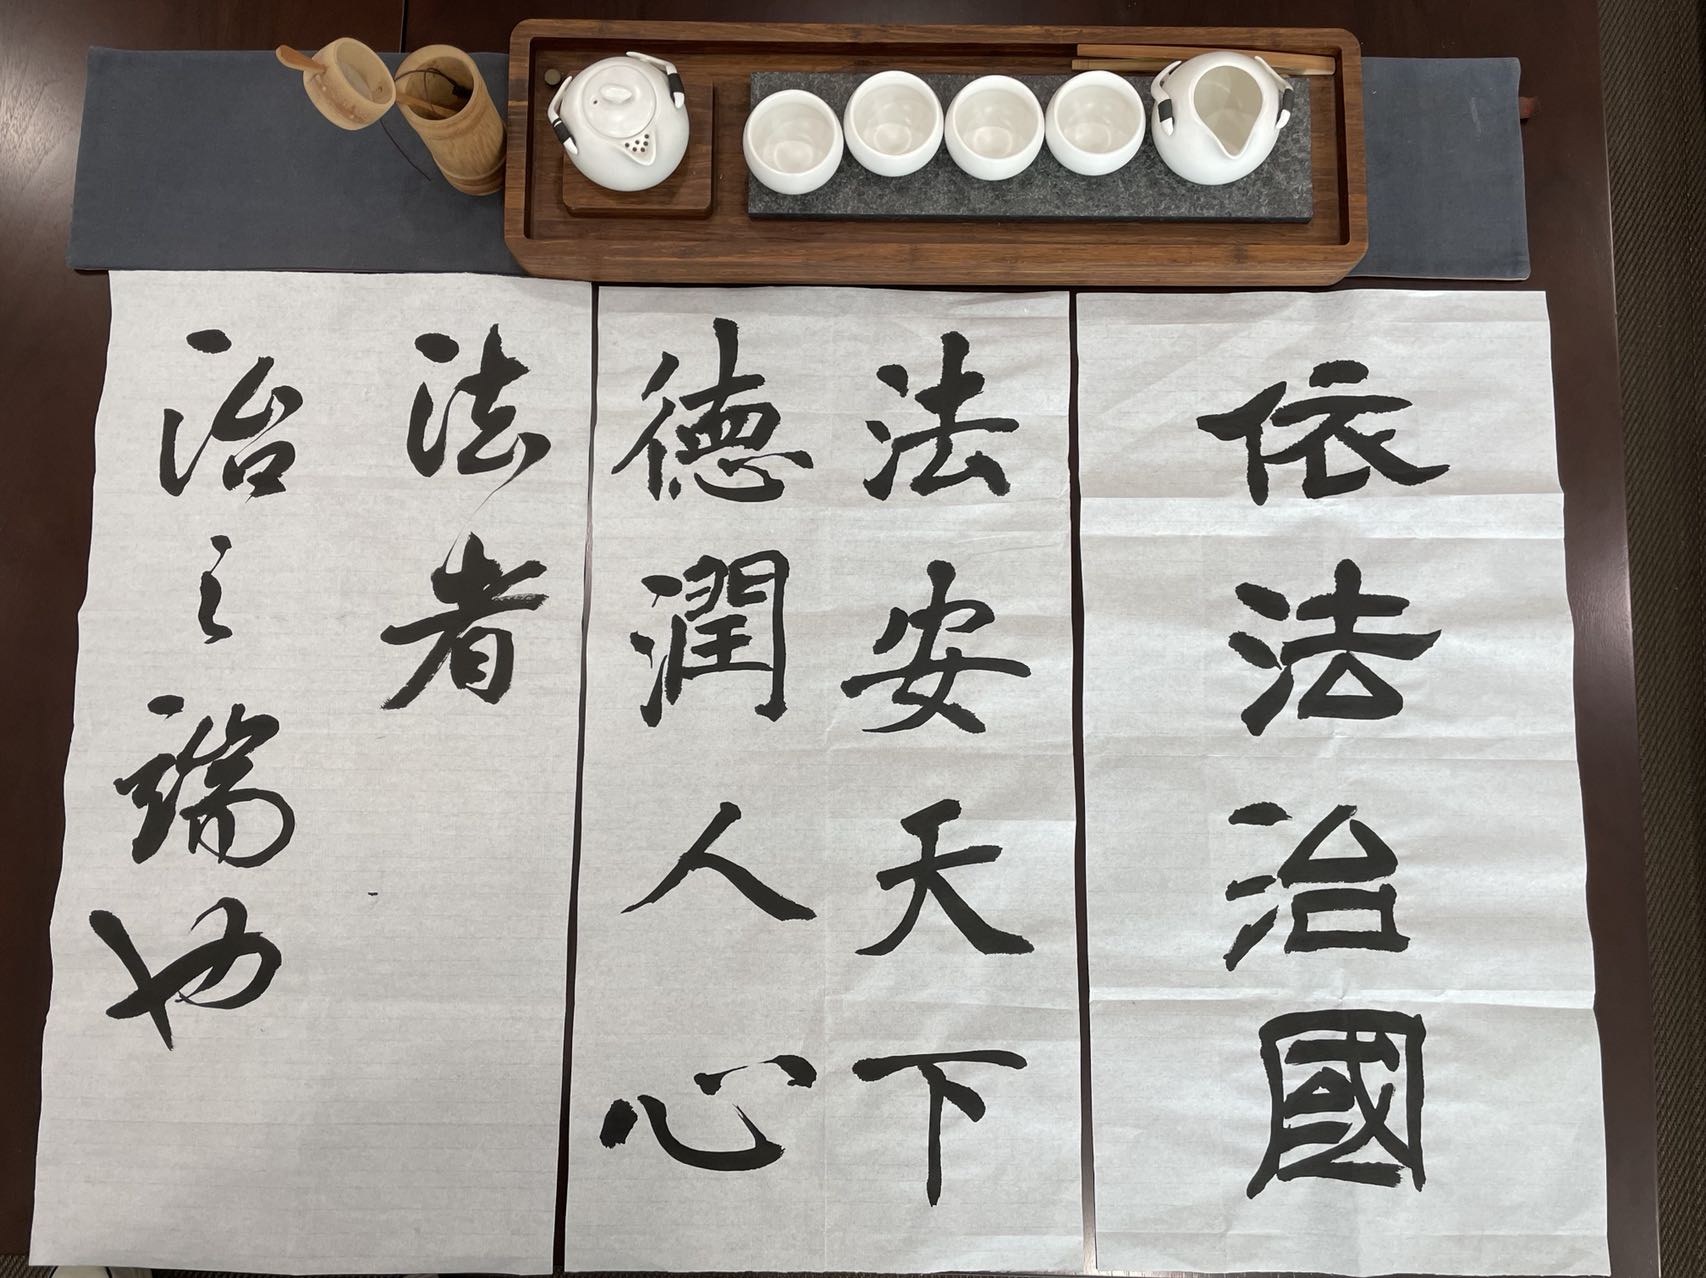 依法治國
法安天下
德潤人心
法者
治之端也